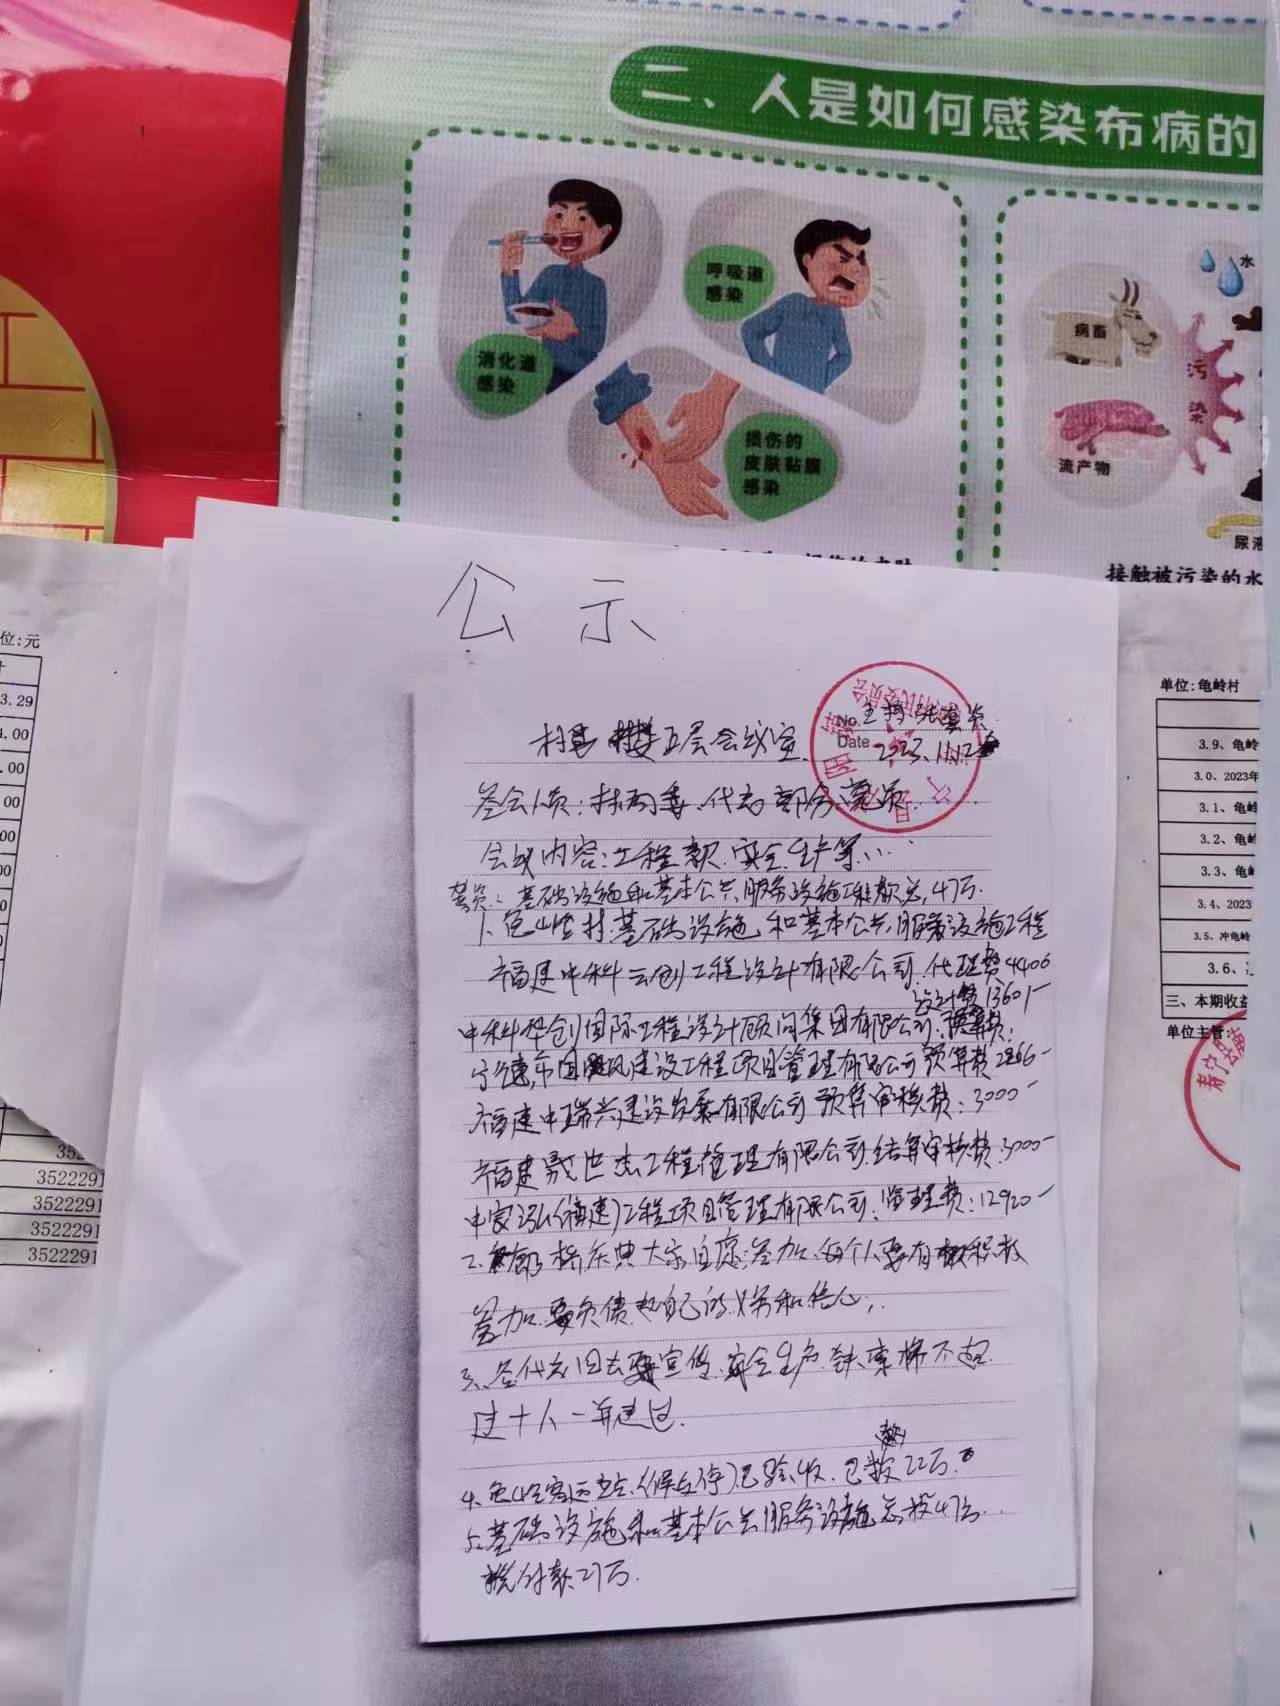 二、人是如何感染布病的
消化道
感染
呼吸道
感染
损伤的
皮肤粘膜
感染
水
病畜
污
染
流产物
尿液
接触被污染的水
公示
位:元
3.29
4.00
.00
00
00
00
3522291
3522291
3522291
3522291
单位:龟岭村
3.9、龟岭
3.0、2023年
3.1、龟岭
3.2、龟岭
3.3、龟岭
3.4、2023
3.5、冲龟岭
3.6、
三、本期收益
单位主管:
No. 主持
Date 2023.11.12
五层会议室
参会人员:村两委、代表、部分党员
会议内容:工程款、安全生产等
基础设施和基本公共服务设施工程款总,47万.
1、龟岭村基础设施和基本公共服务设施工程
福建中科云创工程设计有限公司.代理费4406
设计费13601-
中科华创国际工程设计顾问集团有限公司
宁德市国 建设工程项目管理有限公司预算费2866-
福建中瑞兴建设发展有限公司预算审核费:3000-
福建晟世杰工程管理有限公司结算审核费:3000-
中家泓(福建)工程项目管理有限公司:监理费:12920-
2、廊桥庆典大家自愿参加,每个人要有积极
参加,要负债起自己的义务和信心,
3、各代表回去要宣传,安全生产,铁索桥不超
过十人一并走过.
4、龟岭客运站点(候车亭)已验收,已拨款22万.
5、基础设施和基本公共服务设施总投47万.
拨付款27万.